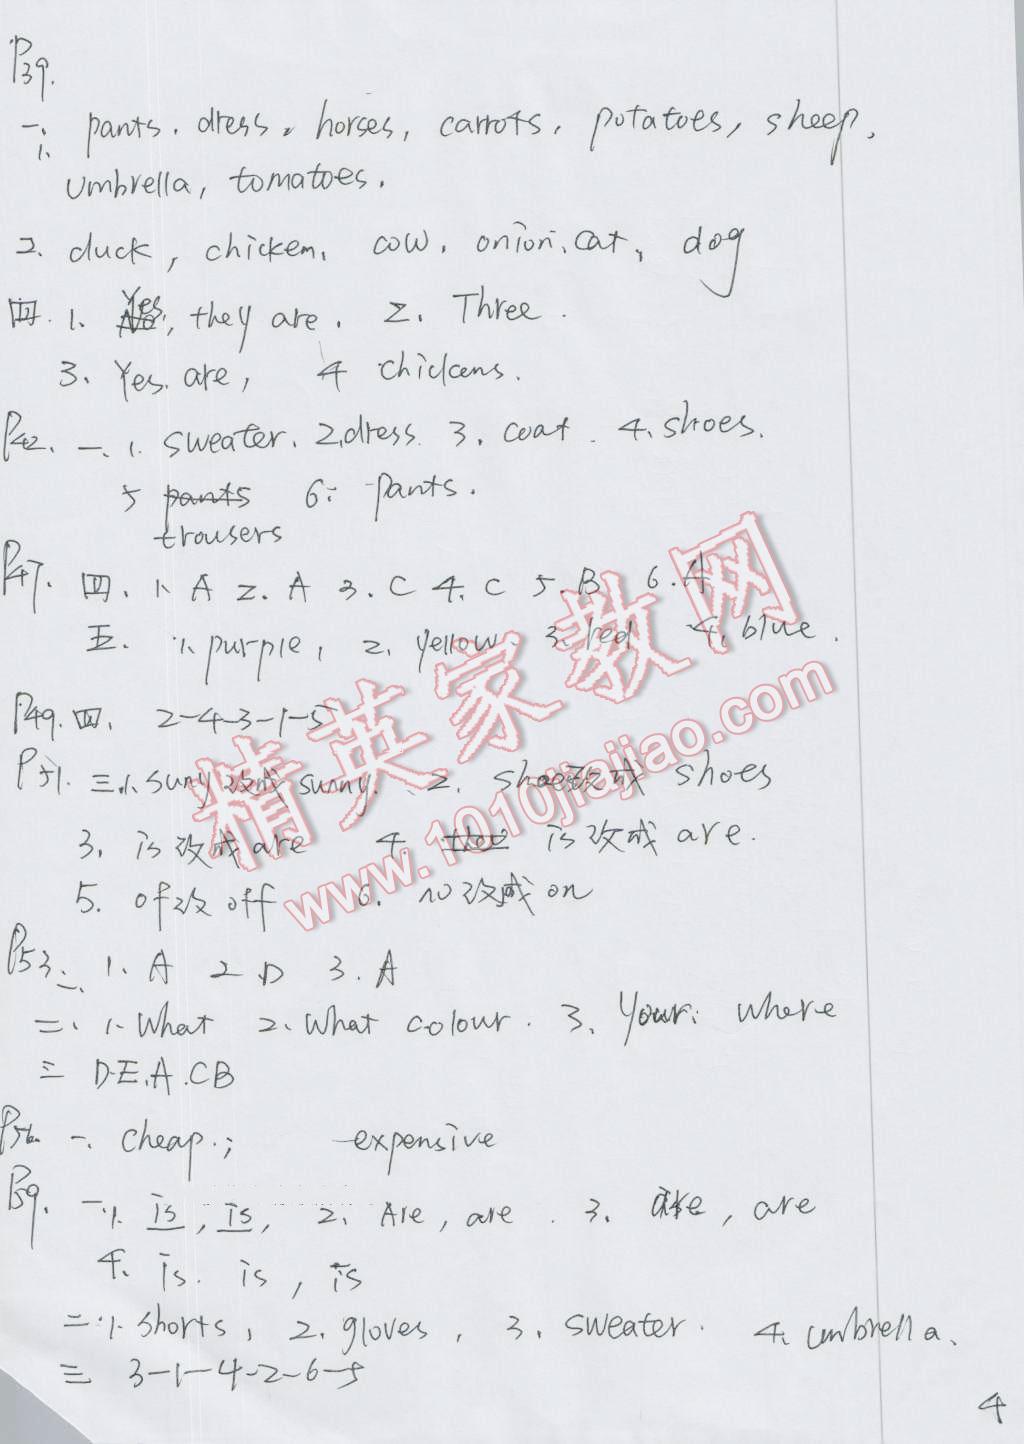 P39.
一. 1. pants, dress, horses, carrots, potatoes, sheep,
umbrella, tomatoes.
2. duck, chicken, cow, onion, cat, dog
四. 1. Yes, they are. 2. Three.
3. Yes, are, 4 chickens.
P42. 一. 1. sweater. 2. dress 3. coat. 4. shoes.
5 pants 6. pants.
trousers
P47. 四. 1. A 2. A 3. C 4. C 5. B 6. A
五. 1. purple, 2. yellow 3. red 4. blue.
P49. 四. 2-4-3-1-5
P51. 三. 1. suny改成 sunny. 2. shoe改成 shoes
3. is改成are 4. is改成are.
5. of改off 6. 改成on
P53 一. 1. A 2 D 3. A
二. 1. What 2. What colour. 3. Your. where
三 D.E.A.CB
P56. 一. cheap.; expensive
P59. 一. 1. is, is, 2. Are, are. 3. are, are
4. is. is, is
二. 1. shorts, 2. gloves, 3. sweater. 4. umbrella.
三 3-1-4-2-6-5
4
精英家教网
www.1010jiajiao.com